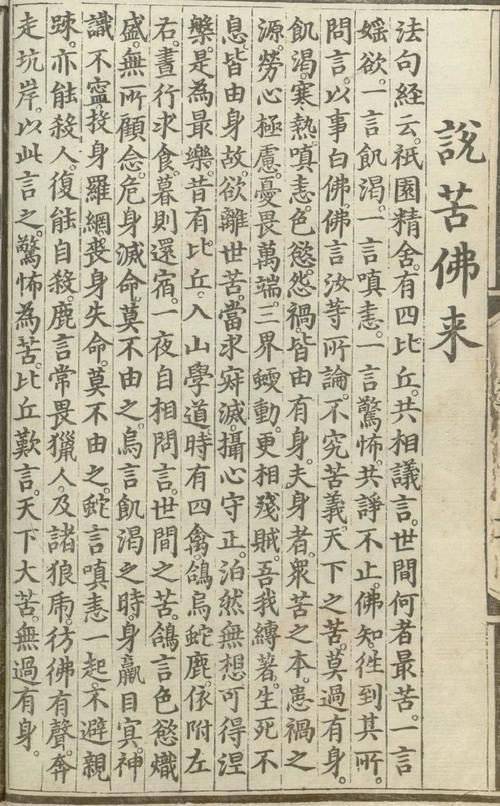 說苦佛来
法句経云。祇園精舍。有四比丘。共相議言。世間何者最苦。一言
婬欲。一言飢渴。一言嗔恚。一言驚怖。共諍不止。佛知。徃到其所。
問言。以事白佛。佛言汝等所論。不究苦義。天下之苦。莫過有身。
飢渴。寒熱。嗔恚。色慾。怨禍。皆由有身。夫身者。衆苦之本。患禍之
源。勞心極慮。憂畏萬端。三界蠕動。更相殘賊。吾我縛著。生死不
息。皆由身故。欲離世苦。當求寂滅。攝心守正。泊然無想。可得涅
槃。是為最樂。昔有比丘。入山學道。時有四禽。鴿烏蛇鹿。依附左
右。晝行求食。暮則還宿。一夜自相問言。世間之苦。鴿言色慾熾
盛。無所顧念。危身滅命。莫不由之。烏言飢渴之時。身羸目冥。神
識不寧。投身羅網。喪身失命。莫不由之。蛇言嗔恚一起。不避親
踈。亦能殺人。復能自殺。鹿言常畏獵人。及諸狼乕。彷彿有聲。奔
走坑岸。以此言之。驚怖為苦。比丘歎言。天下大苦。無過有身。